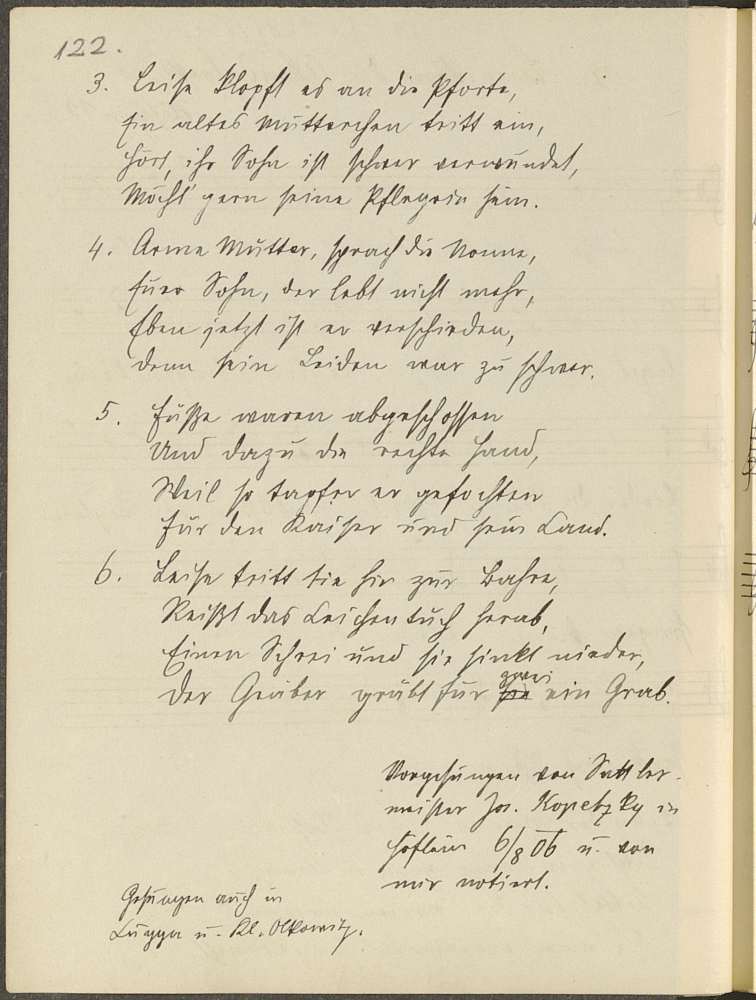 122.
3. Leise klopft es an die Pforte,
Ein altes Mütterchen tritt ein,
Hört, ihr Sohn ist schwer verwundet,
Möcht' gern seine Pflegrin sein.
4. Arme Mutter, sprach die Nonne,
Euer Sohn, der lebt nicht mehr,
Eben jetzt ist er verschieden,
Denn sein Leiden war zu schwer.
5. Füße waren abgeschossen
Und dazu die rechte Hand,
Weil so tapfer er gefochten
Für den Kaiser und sein Land.
6. Leise tritt sie hin zur Bahre,
Reißt das Leichentuch herab,
Einen Schrei und sie sinkt nieder,
Der Gräber gräbt für zwei ein Grab.
Vorgesungen von Sattler-
meister Jos. Kopetzky in
Höflein 6/8 06 u. von
mir notiert.
Gesungen auch in
Luggau u. Kl. Olkowitz.